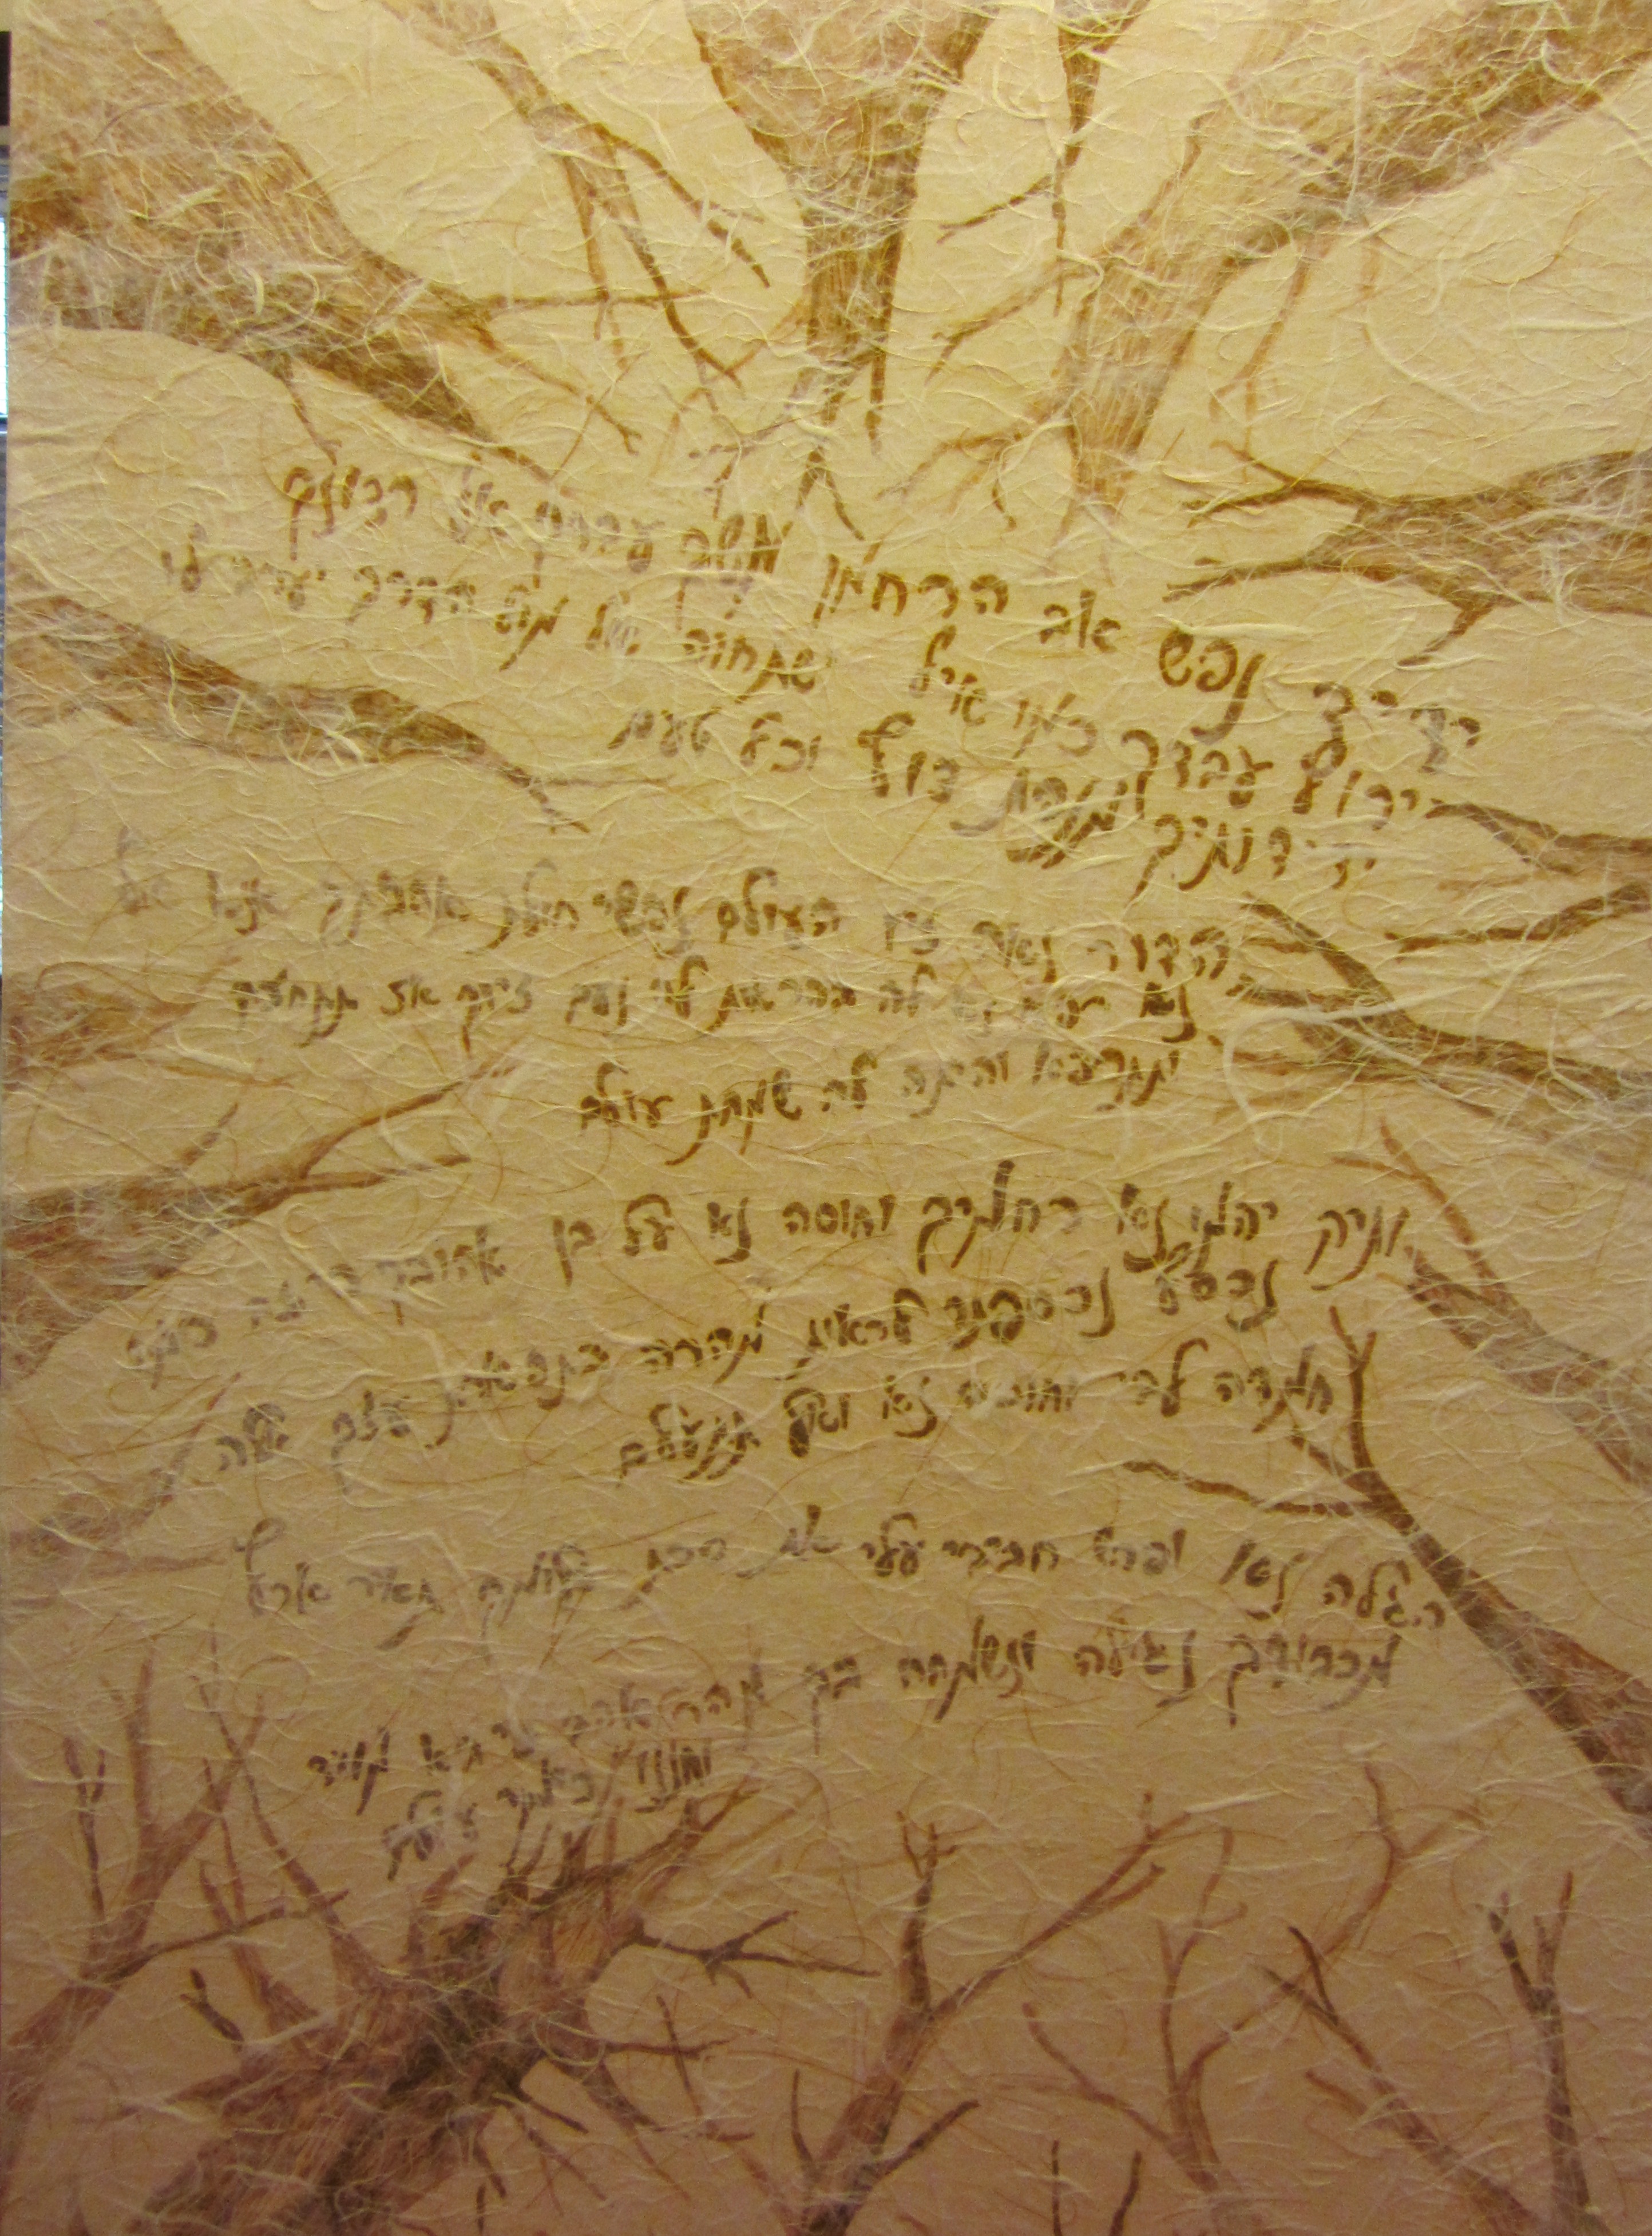 ידיד נפש אב הרחמן משך עבדך אל רצונך
ירוץ עבדך כמו איל ישתחוה אל מול הדרך יערב לו
ידידותיך מנפת צוף וכל טעם
הדור נאה זיו העולם נפשי חולת אהבתך אנא אל
נא רפא נא לה בהראות לה נעם זיוך אז תתחזק
ותתרפא והיתה לה שמחת עולם
ותיק יהמו נא רחמיך וחוסה נא על בן אהובך כי זה כמה
נכסף נכספתי לראות מהרה בתפארת עזך אלה
חמדה לבי וחוסה נא ואל תתעלם
הגלה נא ופרש חביבי עלי את סכת שלומך תאיר ארץ
מכבודך נגילה ונשמחה בך מהר אהב כי בא מועד
וחננו כימי עולם